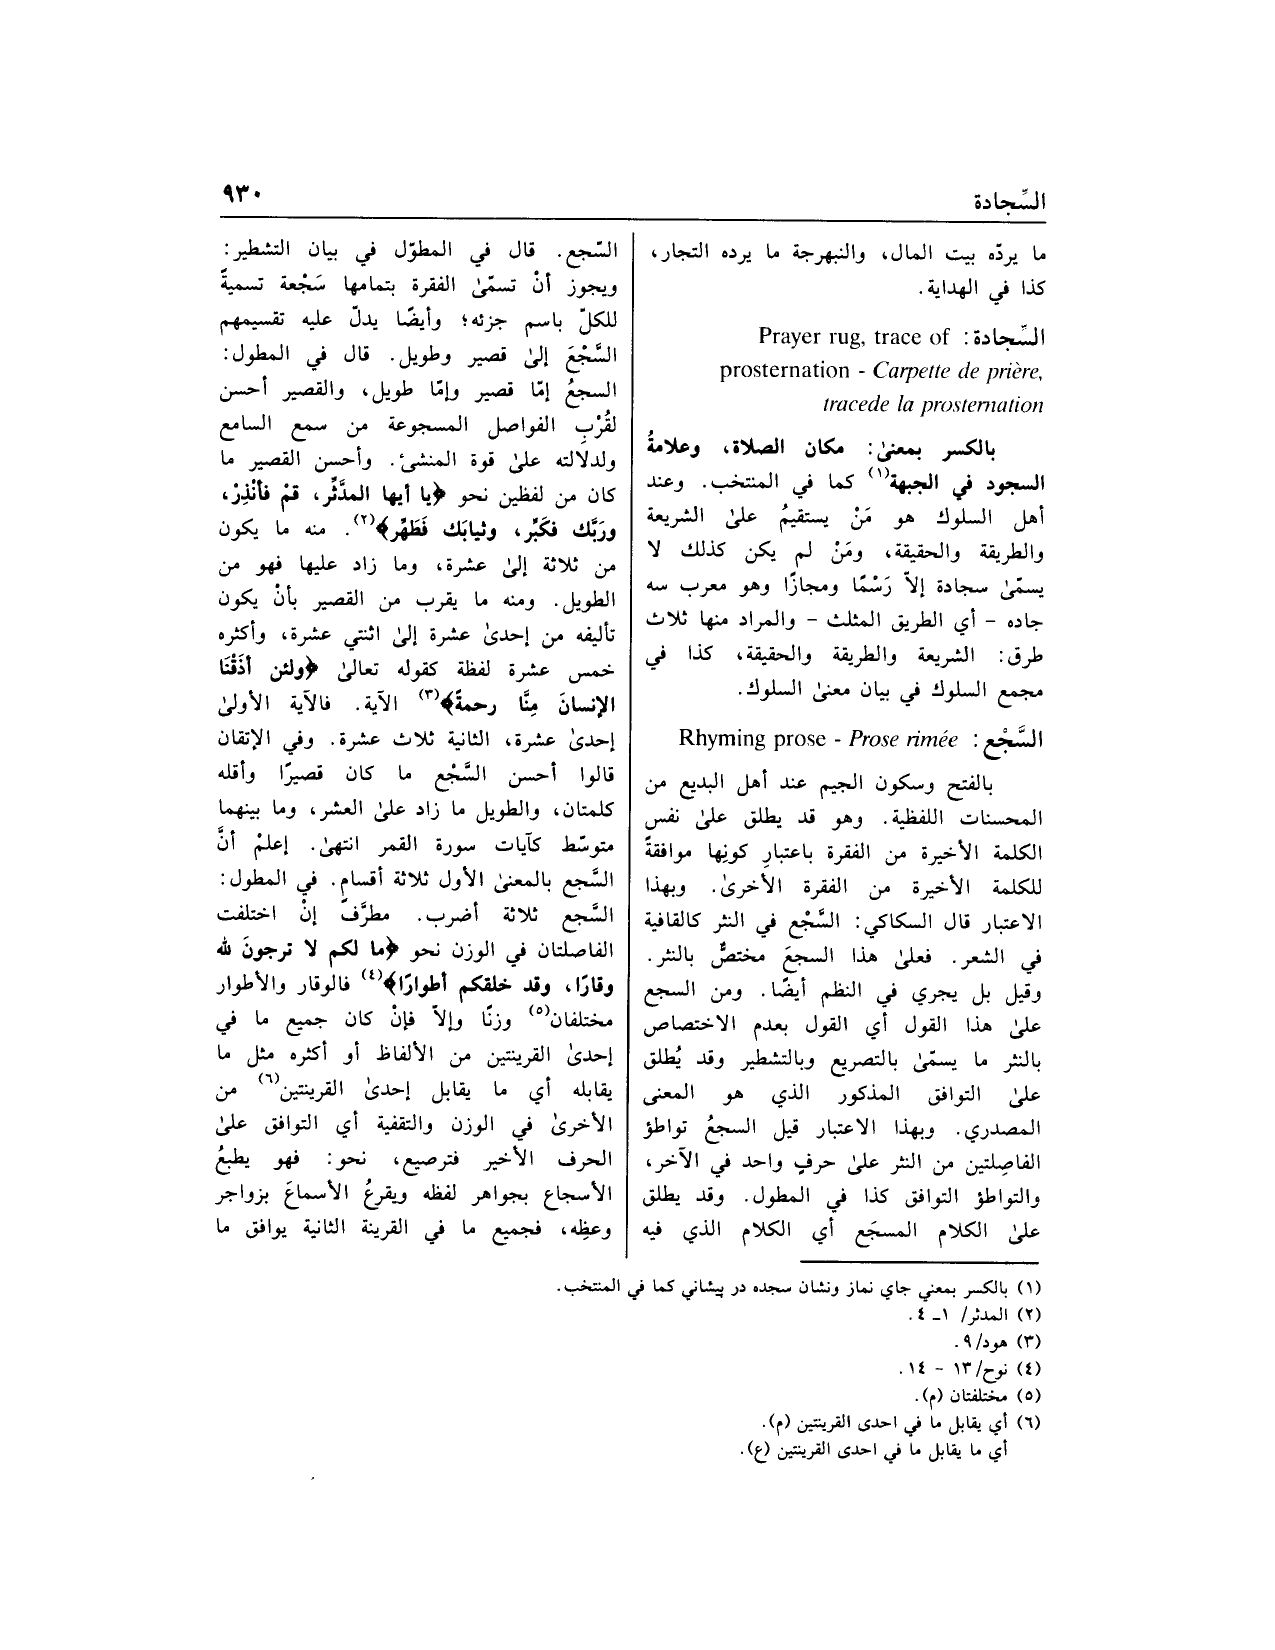 السِّجادة
٩٣٠
ما يردّه بيت المال، والنبهرجة ما يرده التجار،
كذا في الهداية.
السِّجادة: Prayer rug, trace of
prosternation - Carpette de prière,
tracede la prosternation
بالكسر بمعنىٰ: مكان الصلاة، وعلامةُ
السجود في الجبهة(١) كما في المنتخب. وعند
أهل السلوك هو مَنْ يستقيمُ علىٰ الشريعة
والطريقة والحقيقة، ومَنْ لم يكن كذلك لا
يسمّىٰ سجادة إلاّ رَسْمًا ومجازًا وهو معرب سه
جاده - أي الطريق المثلث - والمراد منها ثلاث
طرق: الشريعة والطريقة والحقيقة، كذا في
مجمع السلوك في بيان معنىٰ السلوك.
السَّجْع: Rhyming prose - Prose rimée
بالفتح وسكون الجيم عند أهل البديع من
المحسنات اللفظية. وهو قد يطلق علىٰ نفس
الكلمة الأخيرة من الفقرة باعتبارِ كونِها موافقةً
للكلمة الأخيرة من الفقرة الأخرىٰ. وبهذا
الاعتبار قال السكاكي: السَّجْع في النثر كالقافية
في الشعر. فعلىٰ هذا السجعَ مختصٌّ بالنثر.
وقيل بل يجري في النظم أيضًا. ومن السجع
علىٰ هذا القول أي القول بعدم الاختصاص
بالنثر ما يسمّىٰ بالتصريع وبالتشطير وقد يُطلق
علىٰ التوافق المذكور الذي هو المعنى
المصدري. وبهذا الاعتبار قيل السجعُ تواطؤ
الفاصِلتين من النثر علىٰ حرفٍ واحد في الآخر،
والتواطؤ التوافق كذا في المطول. وقد يطلق
علىٰ الكلام المسجَع أي الكلام الذي فيه
السّجع. قال في المطوّل في بيان التشطير:
ويجوز أنْ تسمّىٰ الفقرة بتمامها سَجْعة تسميةً
للكلّ باسم جزئه؛ وأيضًا يدلّ عليه تقسيمهم
السَّجْعَ إلىٰ قصير وطويل. قال في المطول:
السجعُ إمّا قصير وإمّا طويل، والقصير أحسن
لقُرْبِ الفواصل المسجوعة من سمع السامع
ولدلالته علىٰ قوة المنشئ. وأحسن القصير ما
كان من لفظين نحو ﴿يا أيها المدَّثِّر، قمْ فأنْذِرْ،
ورَبَّك فكَبِّر، وثيابَك فَطَهِّر﴾(٢). منه ما يكون
من ثلاثة إلىٰ عشرة، وما زاد عليها فهو من
الطويل. ومنه ما يقرب من القصير بأنْ يكون
تأليفه من إحدىٰ عشرة إلىٰ اثنتي عشرة، وأكثره
خمس عشرة لفظة كقوله تعالىٰ ﴿ولئن أذَقْنَا
الإنسانَ مِنَّا رحمةً﴾(٣) الآية. فالآية الأولىٰ
إحدىٰ عشرة، الثانية ثلاث عشرة. وفي الإتقان
قالوا أحسن السَّجْع ما كان قصيرًا وأقله
كلمتان، والطويل ما زاد علىٰ العشر، وما بينهما
متوسّط كآيات سورة القمر انتهىٰ. إعلمْ أنَّ
السَّجع بالمعنىٰ الأول ثلاثة أقسام. في المطول:
السَّجع ثلاثة أضرب. مطرَّفٌ إنْ اختلفت
الفاصلتان في الوزن نحو ﴿ما لكم لا ترجونَ لله
وقارًا، وقد خلقكم أطوارًا﴾(٤) فالوقار والأطوار
مختلفان(٥) وزنًا وإلاّ فإنْ كان جميع ما في
إحدىٰ القرينتين من الألفاظ أو أكثره مثل ما
يقابله أي ما يقابل إحدىٰ القرينتين(٦) من
الأخرىٰ في الوزن والتقفية أي التوافق علىٰ
الحرف الأخير فترصيع، نحو: فهو يطبعُ
الأسجاع بجواهر لفظه ويقرعُ الأسماعَ بزواجر
وعظِه، فجميع ما في القرينة الثانية يوافق ما
(١) بالكسر بمعني جاي نماز ونشان سجده در پيشاني كما في المنتخب.
(٢) المدثر/ ١ـ ٤.
(٣) هود/ ٩.
(٤) نوح/ ١٣ - ١٤.
(٥) مختلفتان (م).
(٦) أي يقابل ما في احدى القرينتين (م).
أي ما يقابل ما في احدى القرينتين (ع).